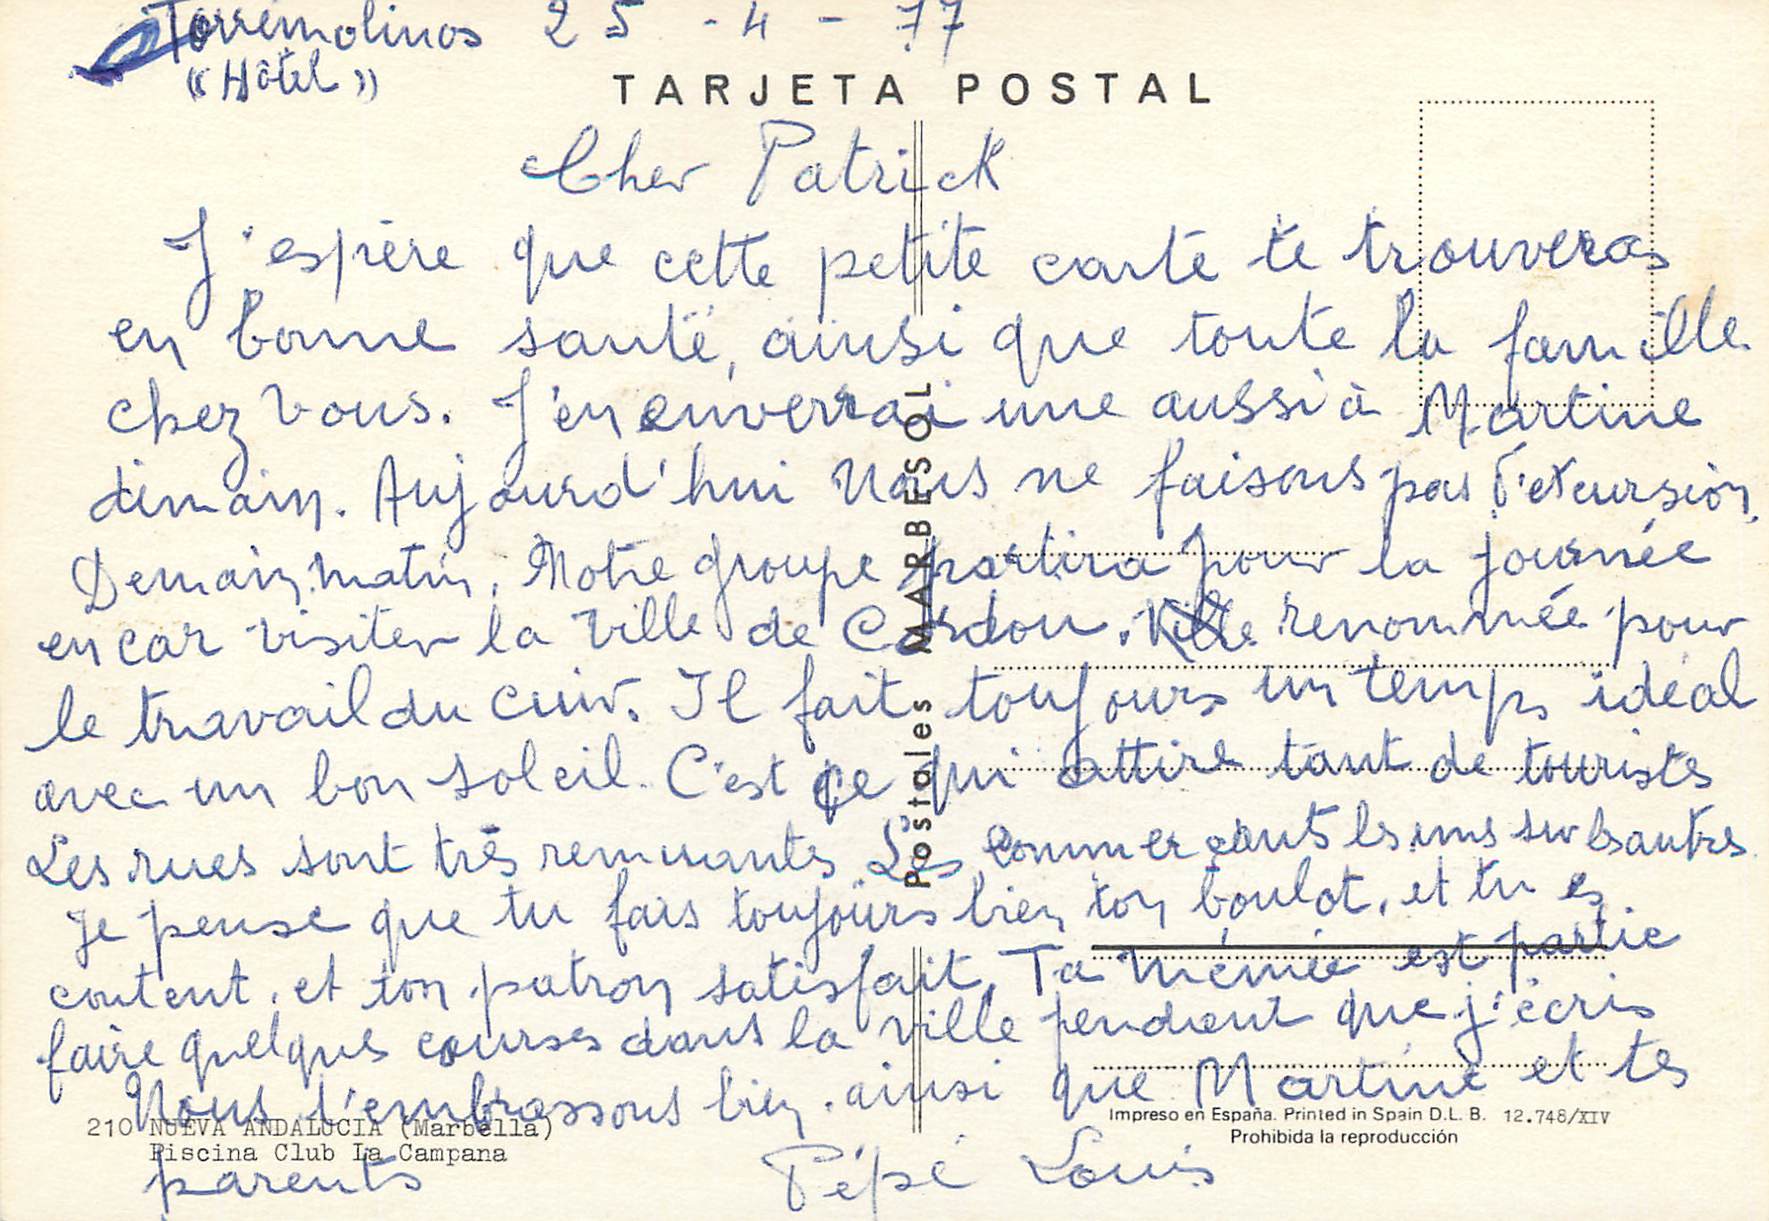 Torremolinos 25 - 4 - 77
"Hôtel"
TARJETA POSTAL
Cher Patrick
J'espère que cette petite carte te trouveras
en bonne santé, ainsi que toute la famille
chez vous. J'en enverrai une aussi à Martine
dimain. Aujourd'hui Nous ne faisons pas d'excursion.
Demain matin, Notre groupe partira pour la journée
en car visiter la ville de Cordou. Ville renommée pour
le travail du cuir. Il fait toujours un temps idéal
avec un bon soleil. C'est ce qui attire tant de touristes
Les rues sont très remuants Les commerçants les uns sur les autres.
Je pense que tu fais toujours bien ton boulot, et tu es
content, et ton patron satisfait. Ta mémée est partie
faire quelques courses dans la ville pendant que j'écris
Nous t'embrassons bien, ainsi que Martine et tes
parents Pépé Louis
Postales MARBESOL
210 NUEVA ANDALUCIA (Marbella)
Piscina Club La Campana
Impreso en España. Printed in Spain D.L. B. 12.748/XIV
Prohibida la reproducción